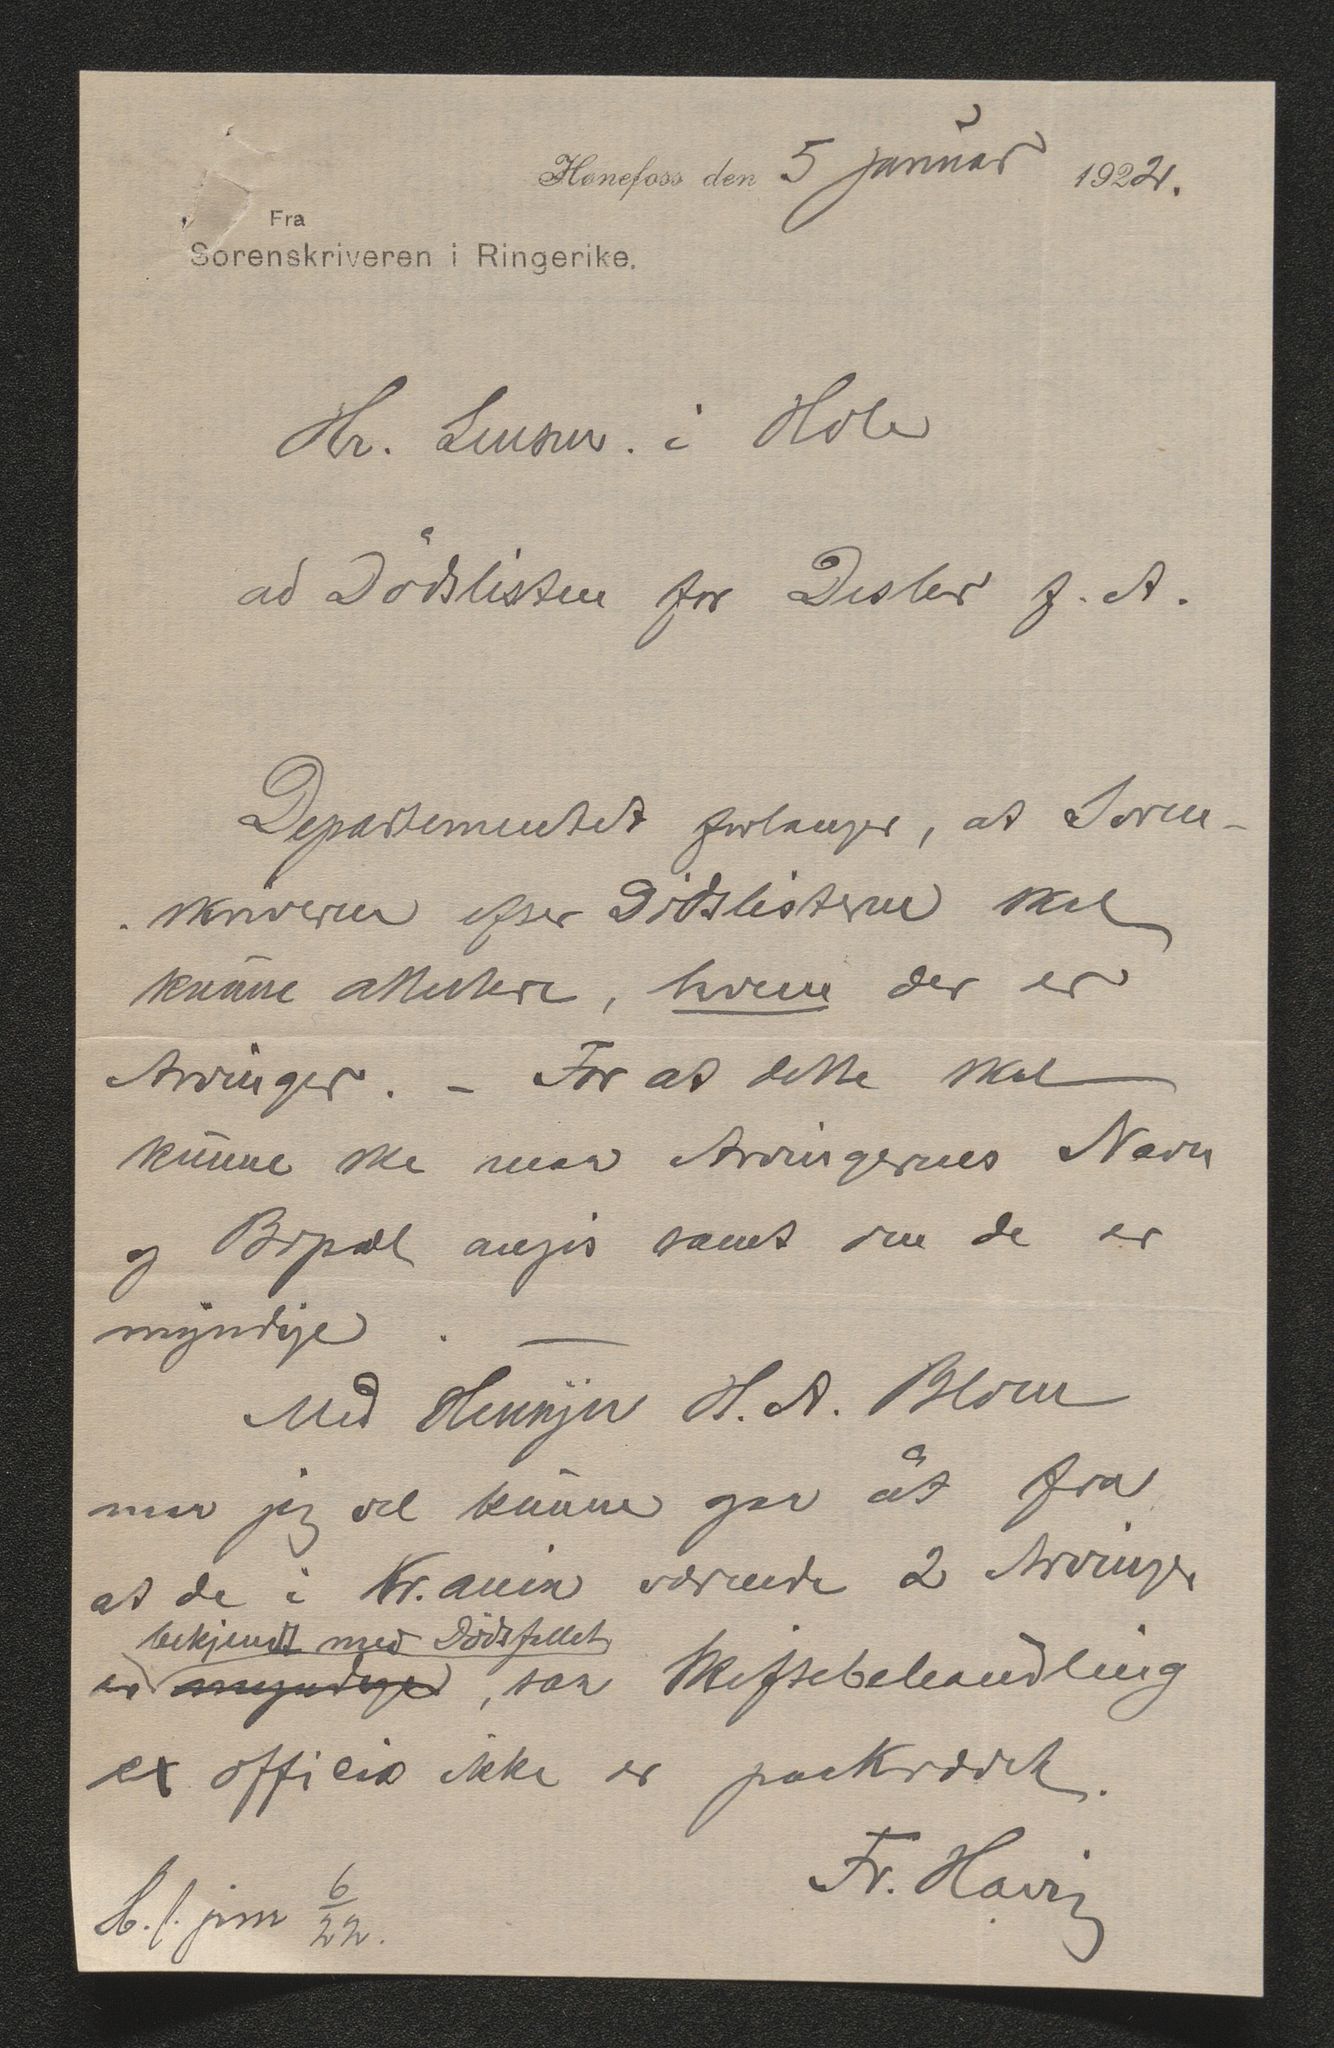 Hønefoss den 5 januar 1922.
Fra
Sorenskriveren i Ringerike.
Hr. Lensm. i Hole
ad Dödslisten for Desbr f. A.
Departementet forlanger, at Soren-
skriveren efter Dödslisterne skal
kunne attestere, hvem der er
Arvinger. - For at dette skal
kunne ske maa Arvingernes Navn
og Bopæl angis samt om de er
myndige. —
Med Hensyn H. A. Blom
maa jeg vel kunne gaa ut fra
at de i Kr.ania værende 2 Arvinger
bekjendt med Dödsfallet
er myndige, saa Skiftebehandling
ex officio ikke er paakrævet.
Fr. Havig
6/22.